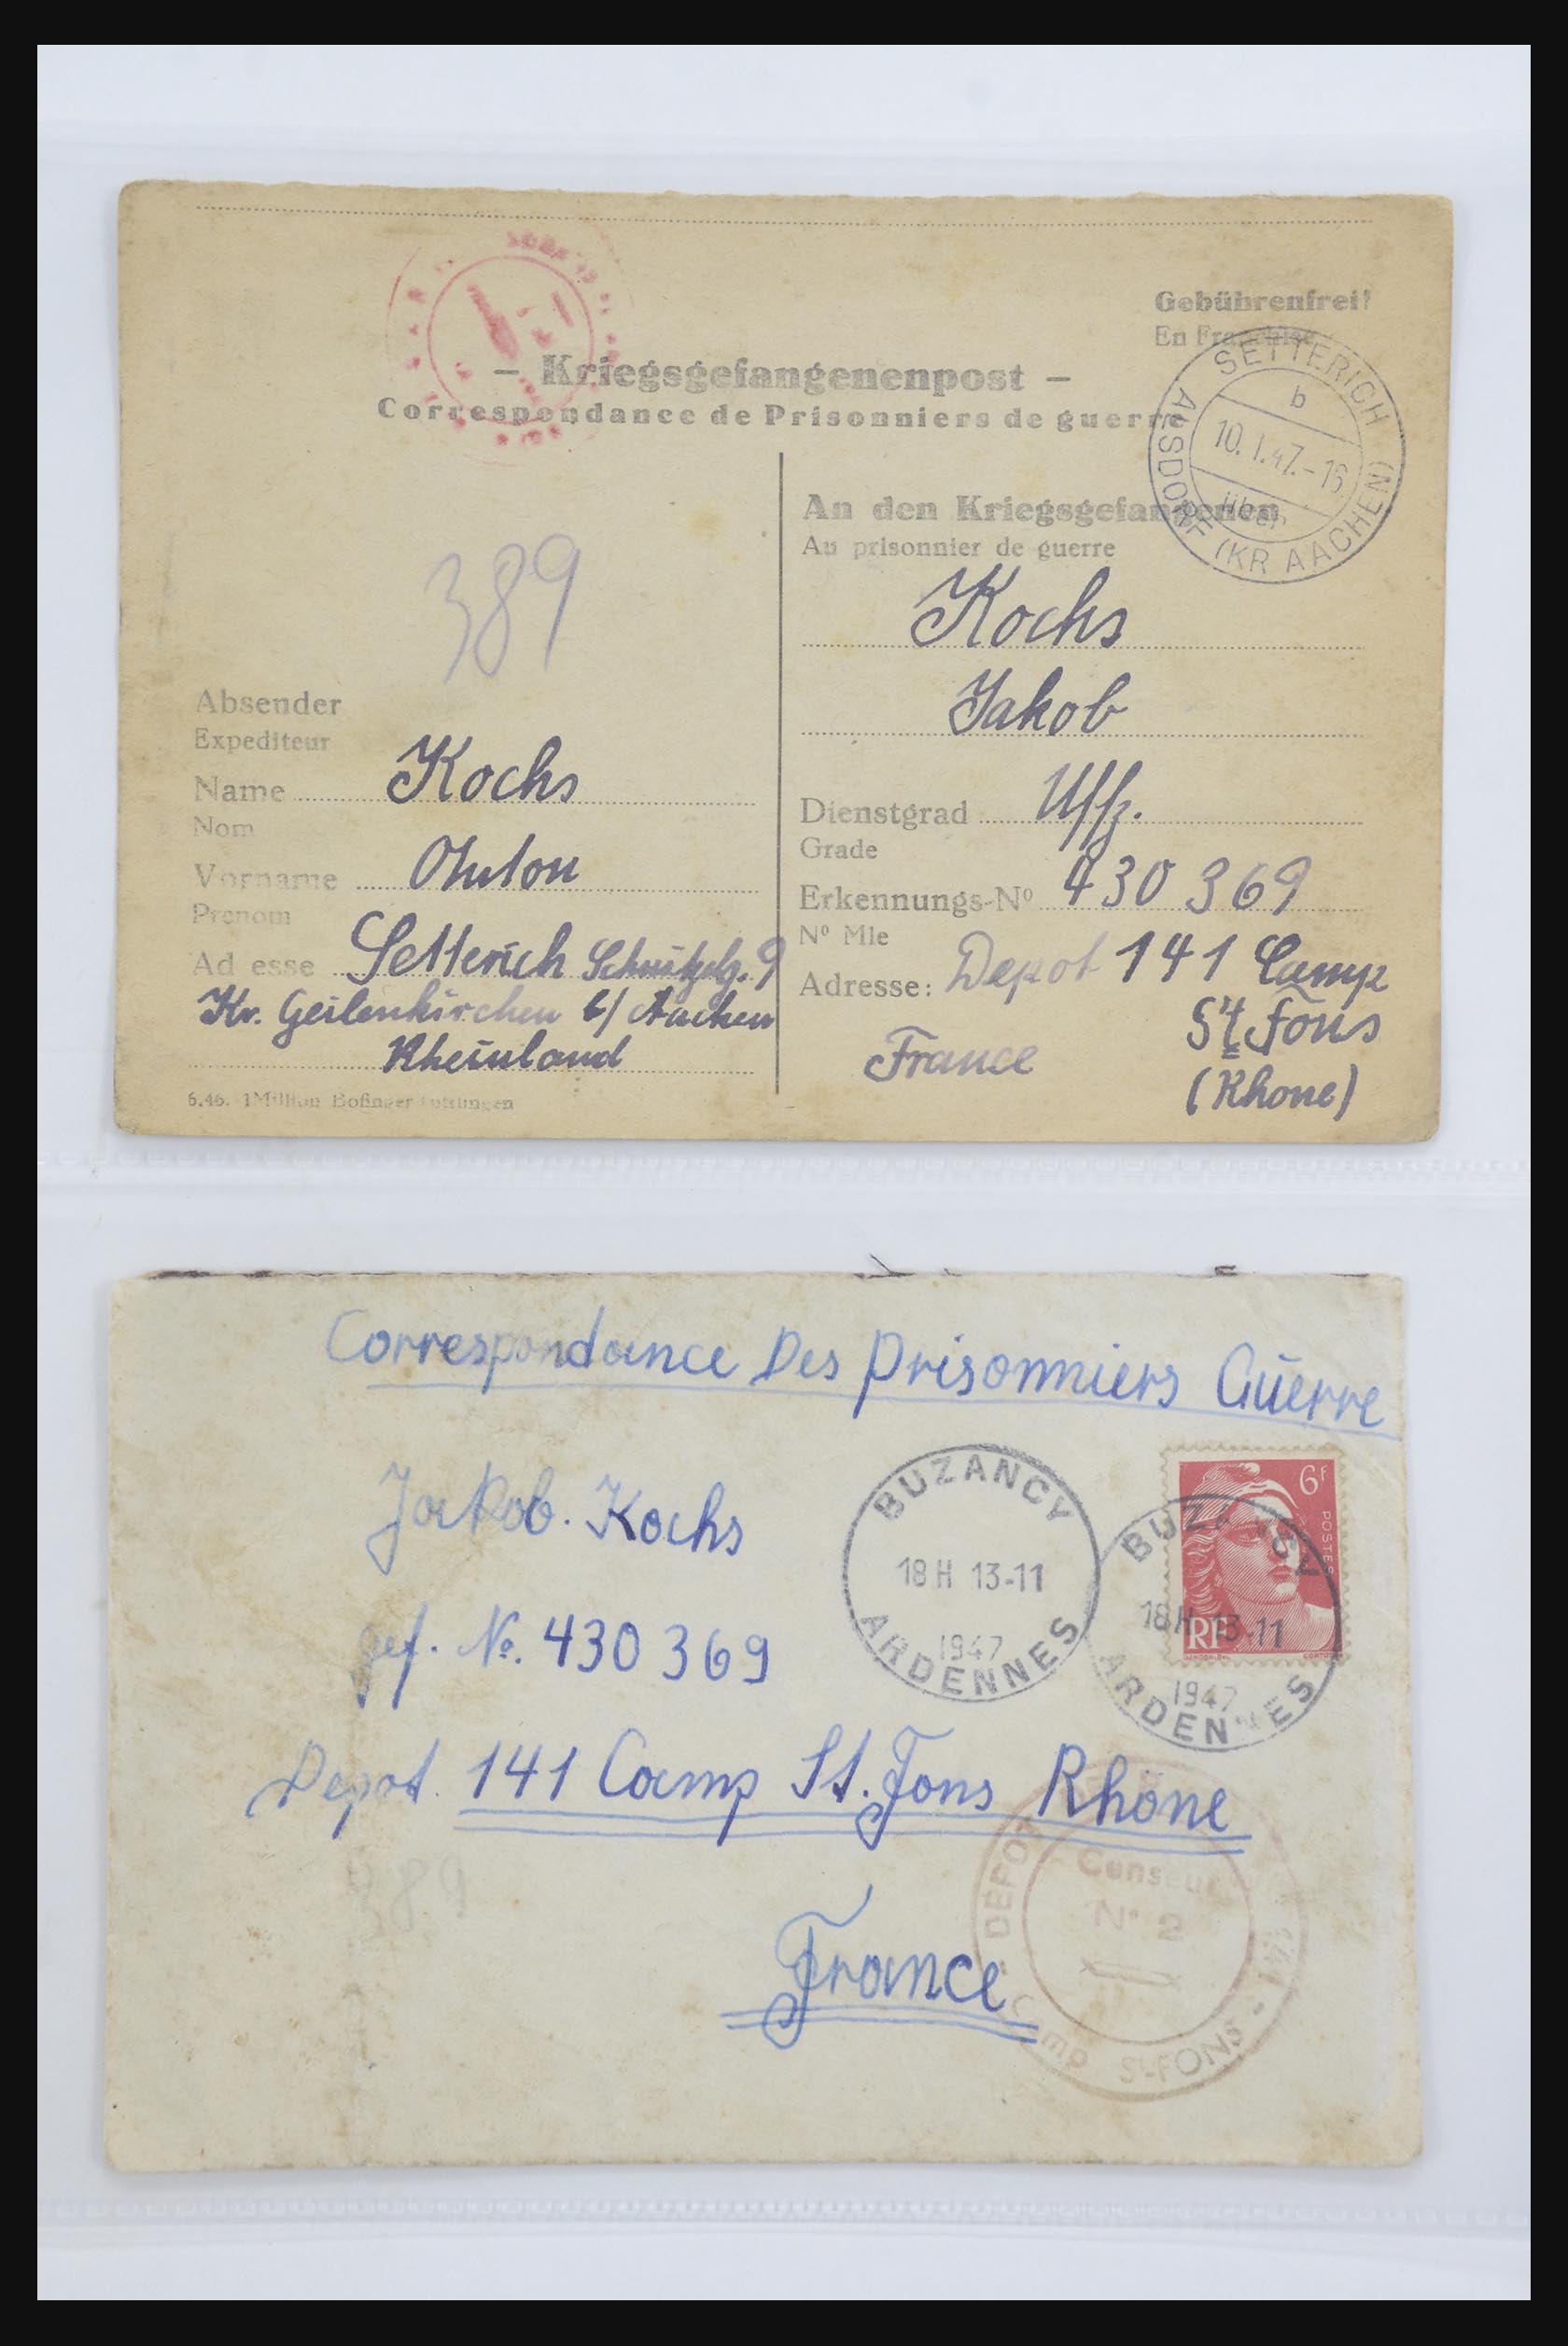 Gebührenfrei!
En Franchise
– Kriegsgefangenenpost –
Correspondance de Prisonniers de guerre
SETTERICH
b
10.1.47.-16
über
ALSDORF (KR AACHEN)
389
An den Kriegsgefangenen
Au prisonnier de guerre
Kochs
Jakob
Dienstgrad Uffz.
Grade
Erkennungs-Nº 430 369
Nº Mle
Adresse: Depot 141 Camp
St Fons
France
(Rhone)
Absender
Expediteur
Name Kochs
Nom
Vorname Anton
Prenom
Ad esse Setterich 9
Kr. Geilenkirchen b/ Aachen
Rheinland
6.46. 1 Million Bofinger
Correspondance Des Prisonniers Guerre
Jakob. Kochs
gef. Nº. 430 369
Depot. 141 Camp St. Fons Rhône
France
BUZANCY
18H 13-11
1947
ARDENNES
6F
POSTES
RF
BUZANCY
18H 13-11
1947
ARDENNES
389
DEPOT
Censeur
Nº 2
Camp St-FONS - 141